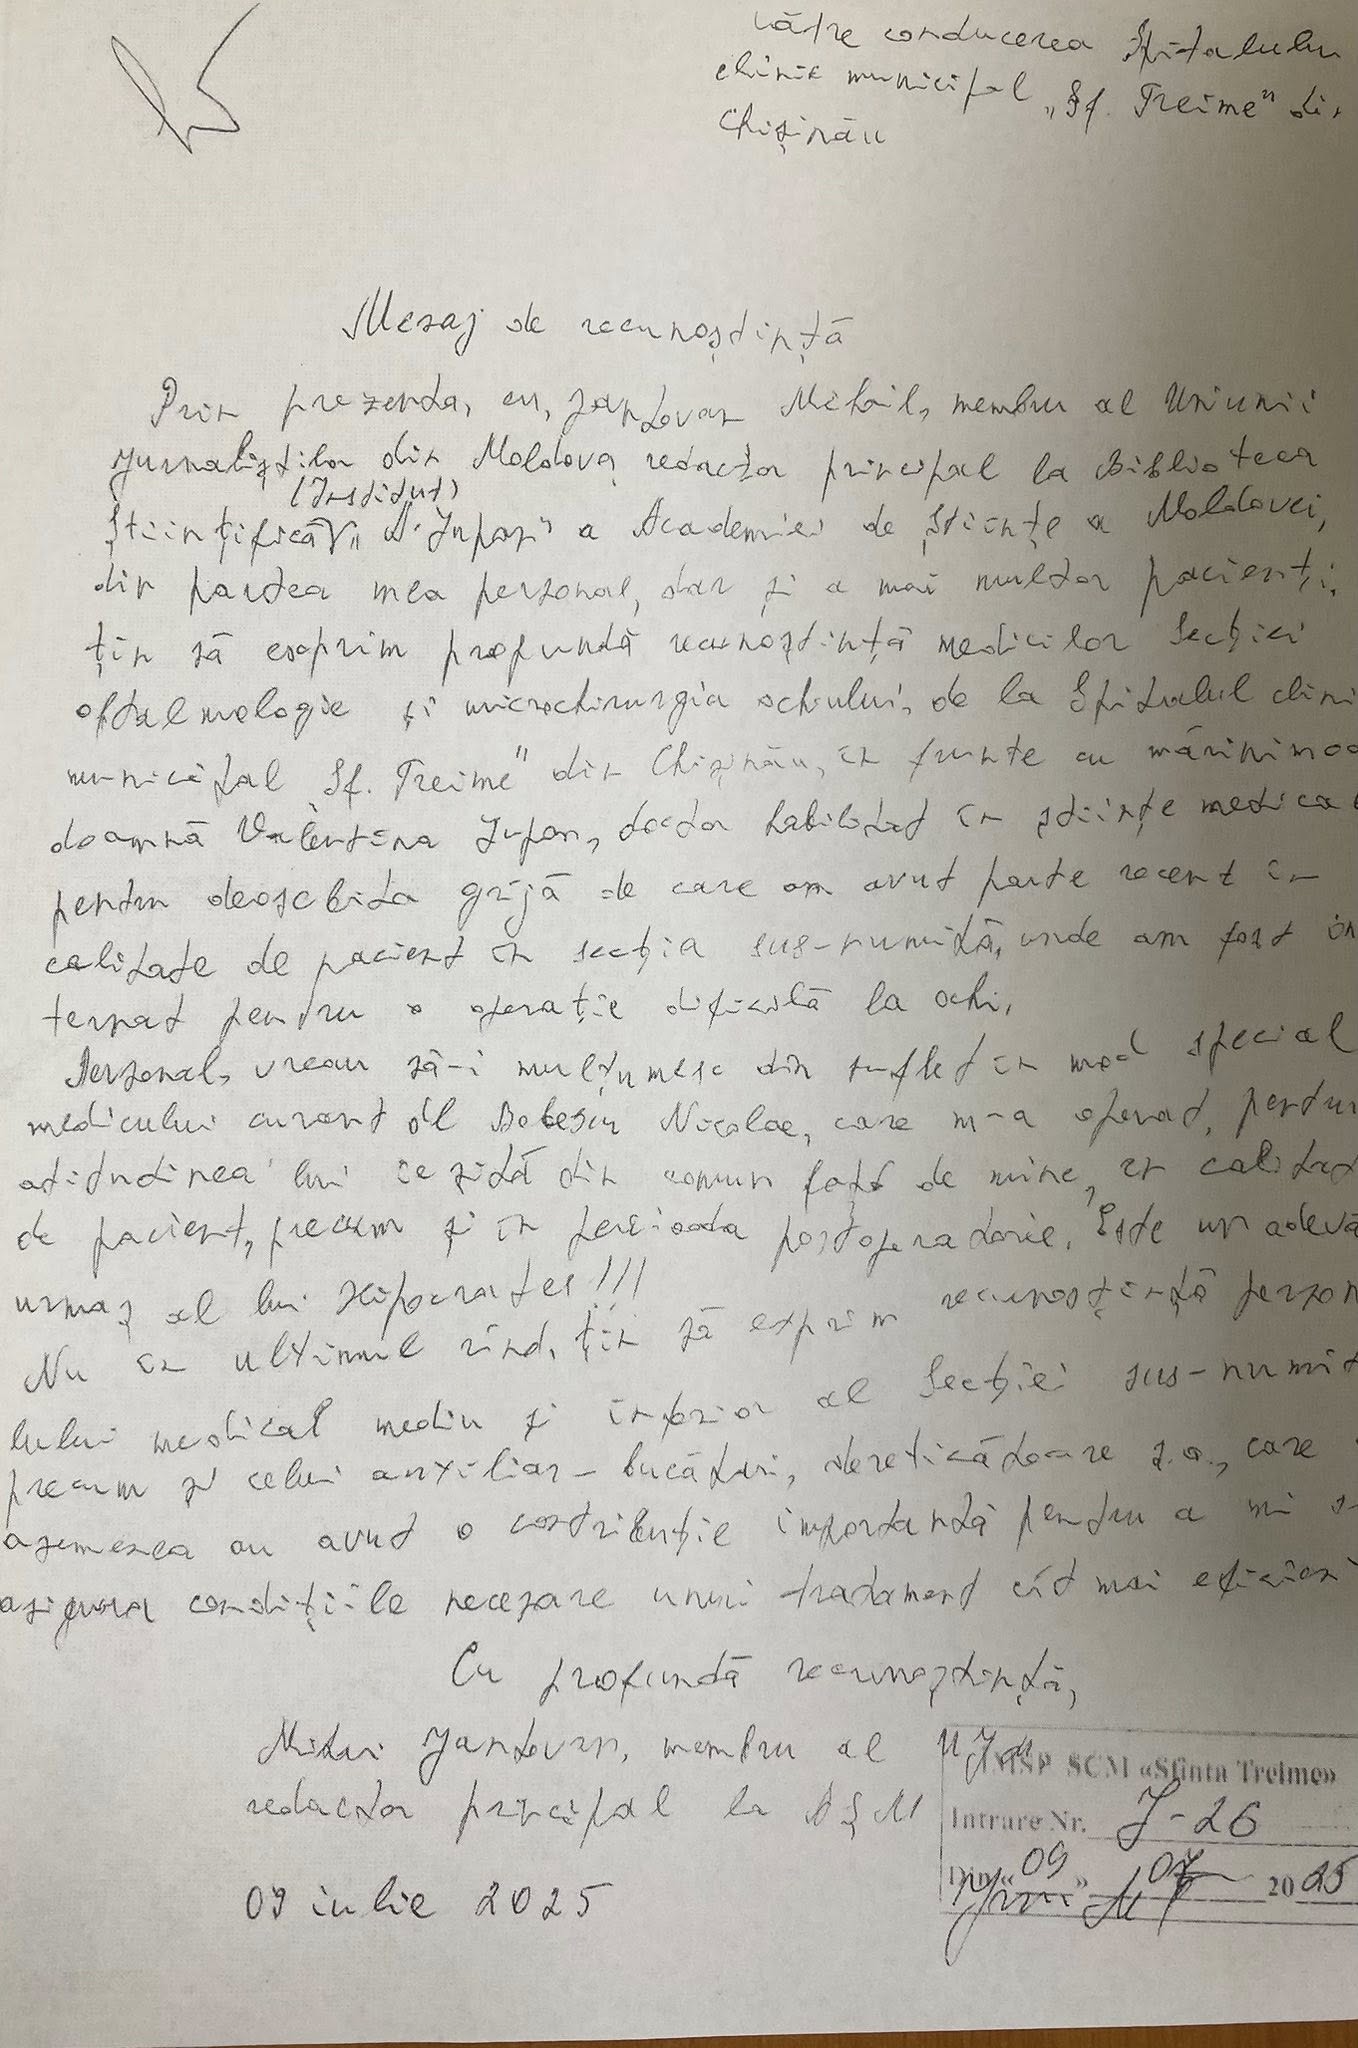 Către conducerea Spitalului
clinic municipal „Sf. Treime” din
Chișinău
Mesaj de recunoștință
Prin prezenta, eu, Mihail, membru al Uniunii
Jurnaliștilor din Moldova, redactor principal la Biblioteca
(Institut)
Științifică „A. Lupan” a Academiei de Științe a Moldovei,
din partea mea personal, dar și a mai multor pacienți,
țin să exprim profundă recunoștință medicilor Secției
oftalmologie și microchirurgia ochiului, de la Spitalul clini
municipal Sf. Treime” din Chișinău, în frunte cu mărinimoa
doamnă Valentina Lupan, doctor habilitat în științe medical
pentru deosebita grijă de care am avut parte recent în
calitate de pacient în secția sus-numită, unde am fost in
ternat pentru o operație dificilă la ochi.
Personal, vreau să-i mulțumesc din suflet în mod special
medicului curant dl Nicolae, care m-a operat, pentru
atitudinea lui ieșită din comun față de mine, în calitat
de pacient, precum și în perioada postoperatorie. Este un adevă
urmaș al lui Hipocrates!!!
Nu în ultimul rînd, țin să exprim recunoștință person
lului medical mediu și inferior al Secției sus-numit
precum și celui auxiliar – bucătari, dereticătoare ș.a., care
asemenea au avut o contribuție importantă pentru a mi s
asigura condițiile necesare unui tratament cît mai eficient
Cu profundă recunoștință,
membru al UJM
redactor principal la AȘM
IMSP SCM «Sfînta Treime»
Intrare Nr. J-26
Din «09» 07 2025
09 iulie 2025